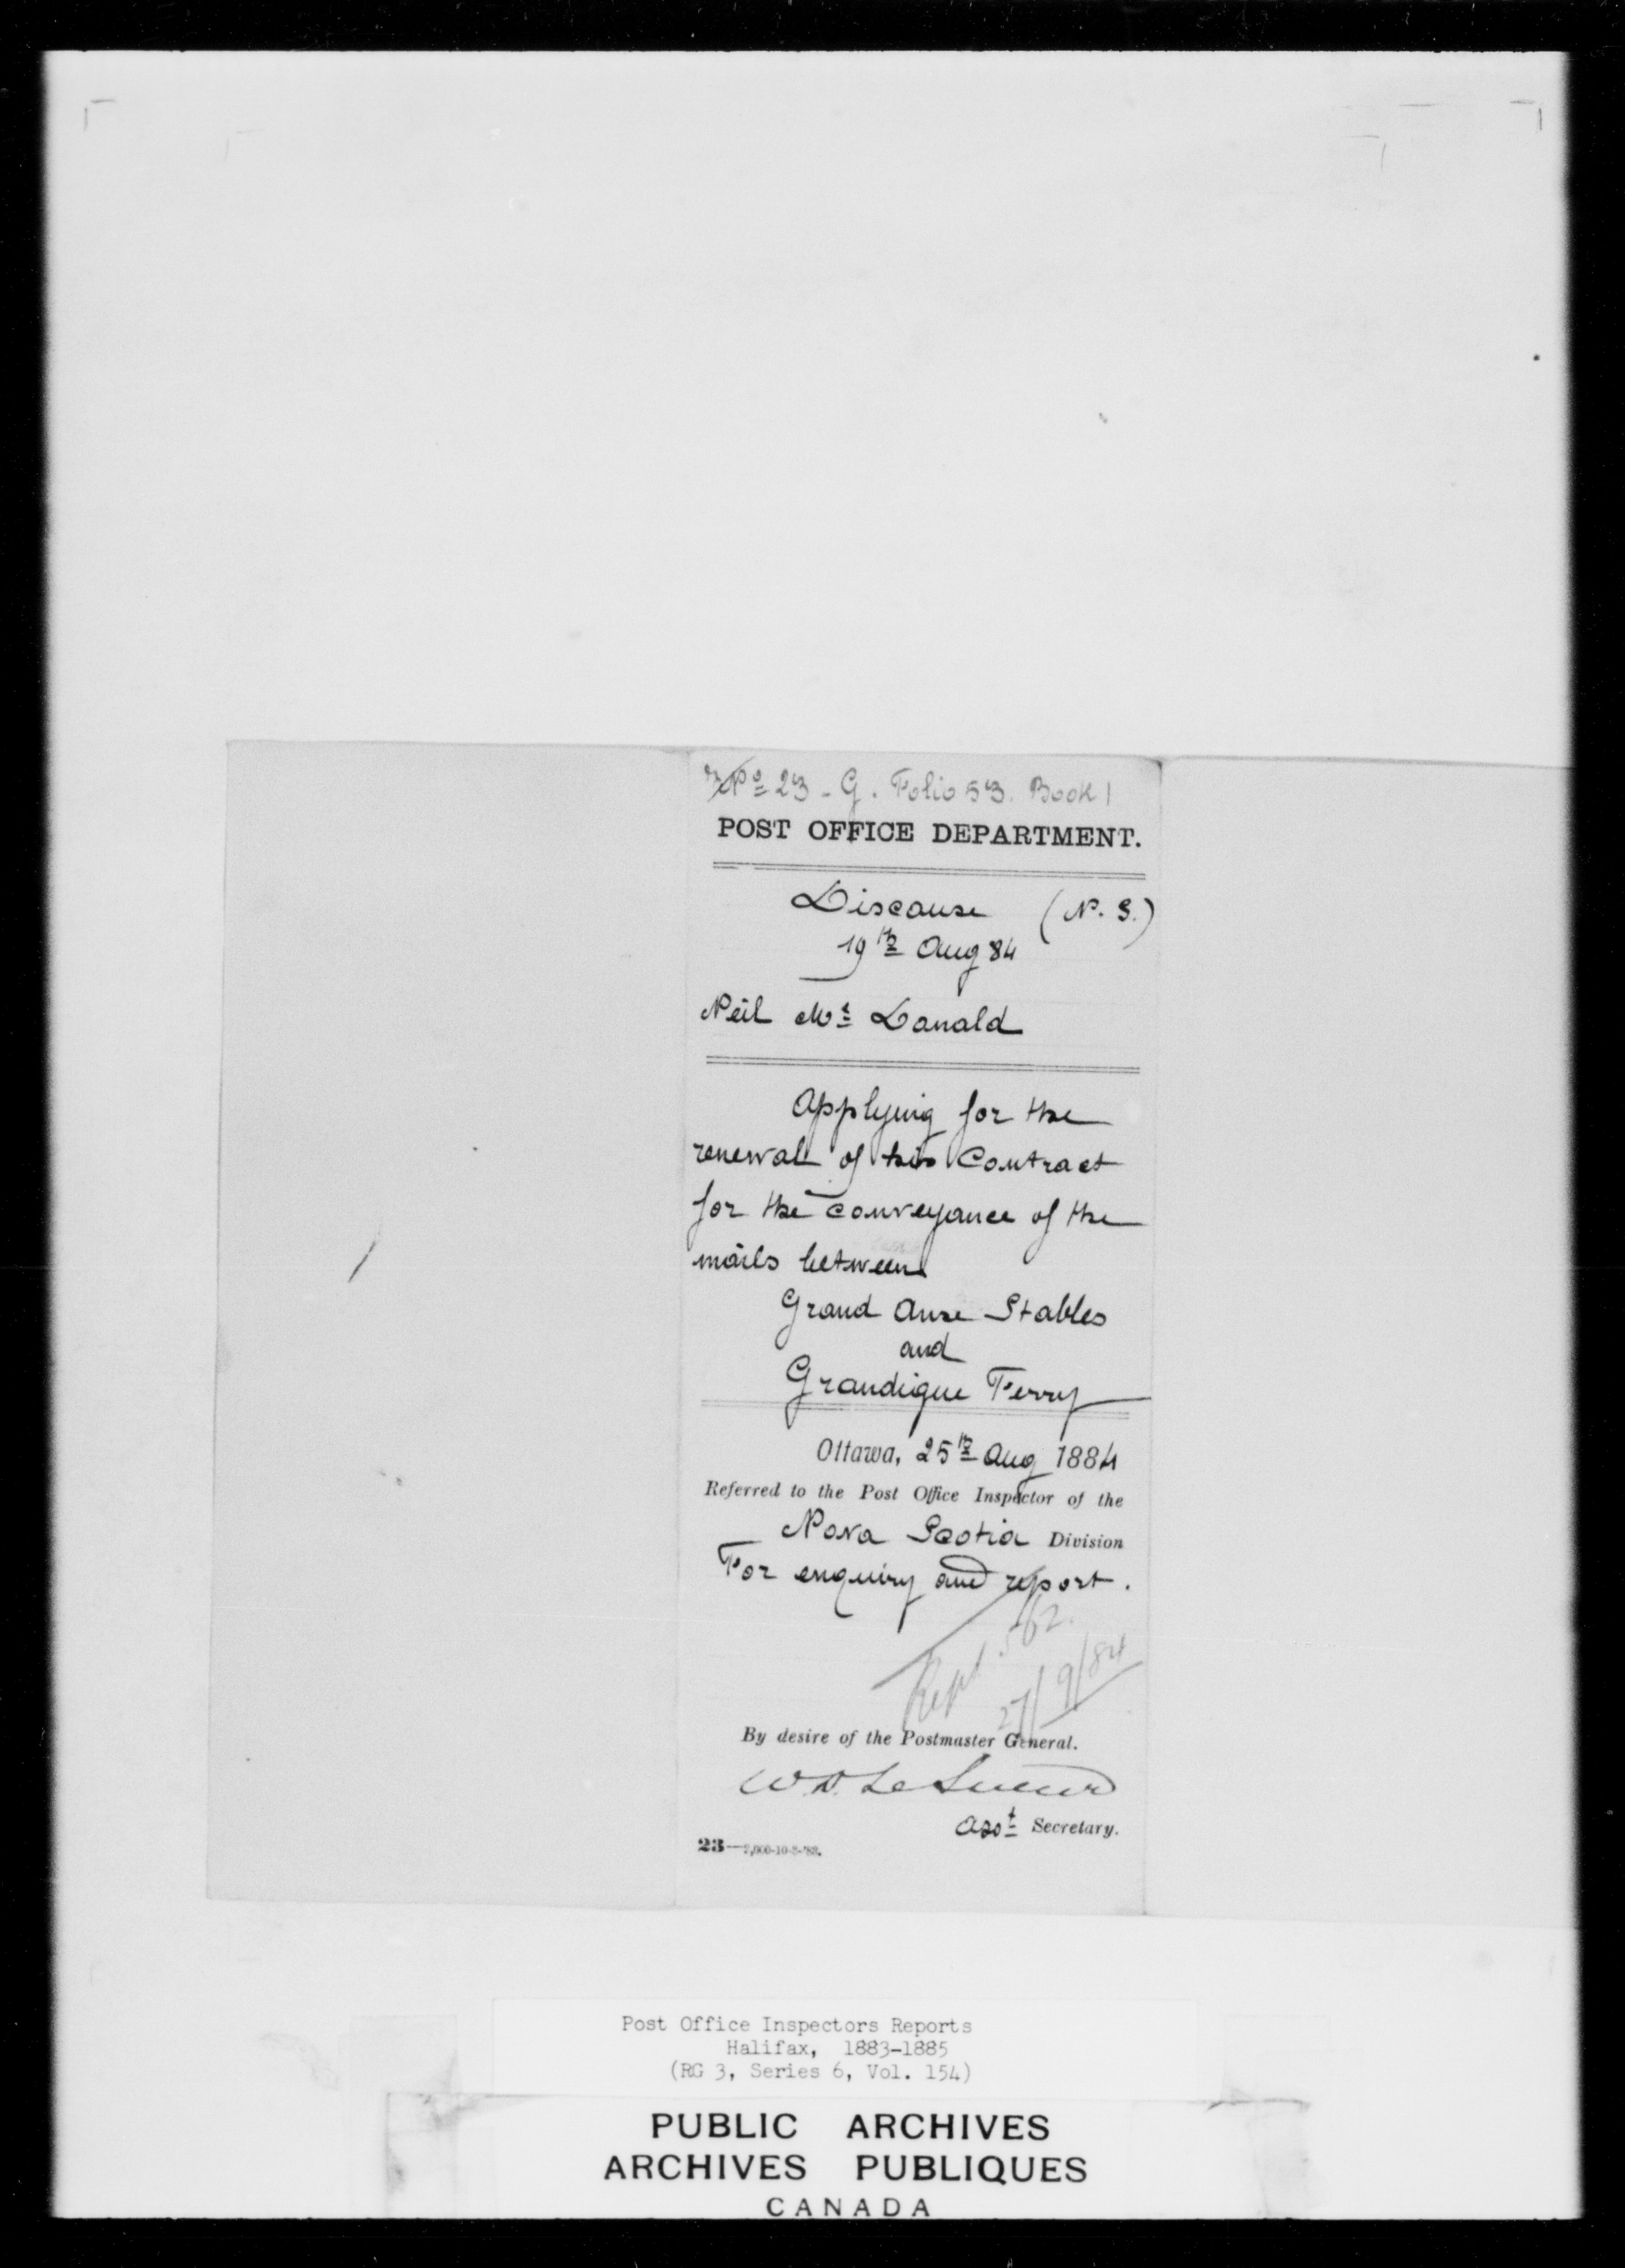 No 23 - G. Folio 53. Book 1
POST OFFICE DEPARTMENT.
Discouse (N. S.)
19th Aug 84
Neil Mc Donald
Applying for the
renewal of his Contract
for the conveyance of the
mails between
Grand Anse Stables
and
Grandique Ferry
Ottawa, 25th Aug 1884
Referred to the Post Office Inspector of the
Nova Scotia Division
For enquiry and report.
Rept. 562.
27/9/84
By desire of the Postmaster General.
W. D. Le Sueur
Asst Secretary.
23—7,000-10-5-'83.
Post Office Inspectors Reports
Halifax, 1883-1885
(RG 3, Series 6, Vol. 154)
PUBLIC ARCHIVES
ARCHIVES PUBLIQUES
CANADA